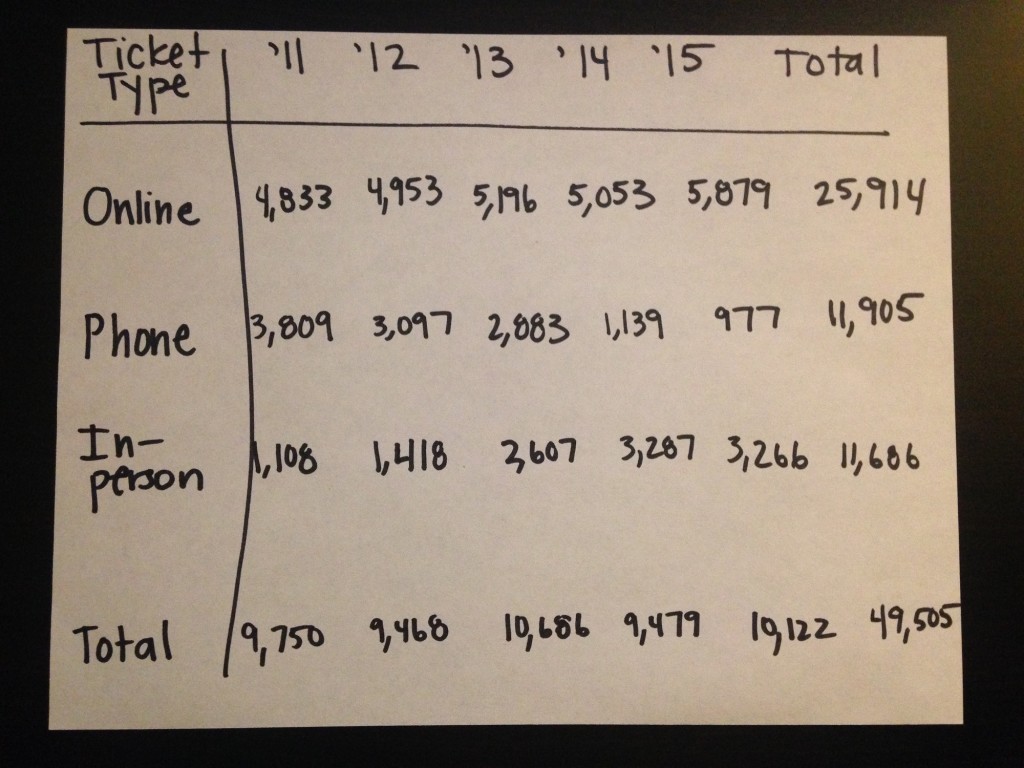 Ticket '11 '12 '13 '14 '15 Total
Type
Online 4,833 4,953 5,196 5,053 5,879 25,914
Phone 3,809 3,097 2,883 1,139 977 11,905
In-
person 1,108 1,418 2,607 3,287 3,266 11,686
Total 9,750 9,468 10,686 9,479 10,122 49,505